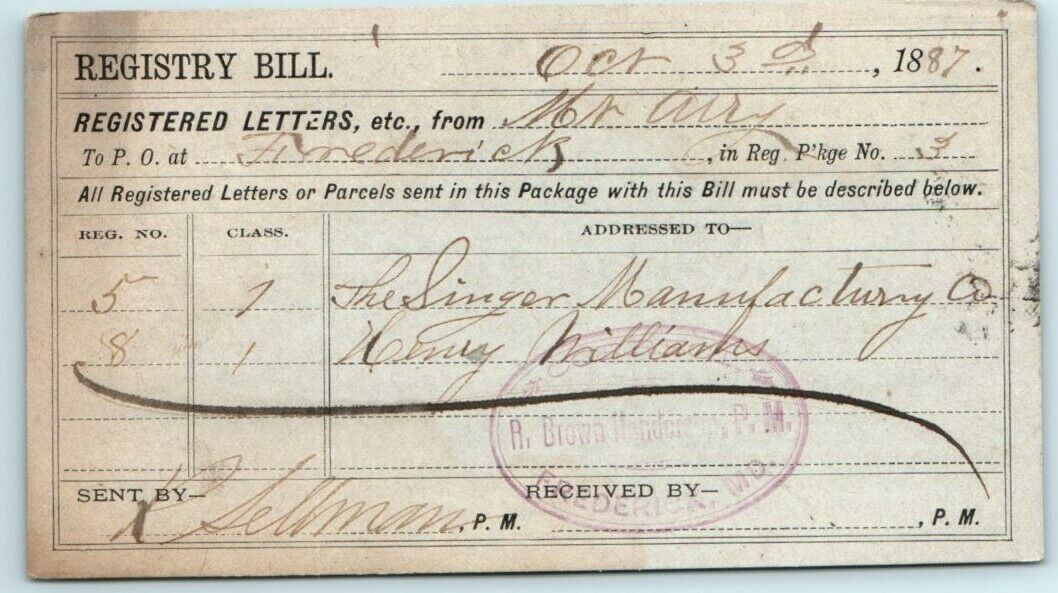 REGISTRY BILL. Oct 3d, 1887.
REGISTERED LETTERS, etc., from Mt Airy
To P. O. at Frederick, in Reg. P'kge No. 3
All Registered Letters or Parcels sent in this Package with this Bill must be described below.
REG. NO. CLASS. ADDRESSED TO—
5 1 The Singer Manufacturing Co
8 1 Henry Williams
R. Brown Henderson, P. M.
FREDERICK, MD.
SENT BY— RECEIVED BY—
Sellman, P. M. , P. M.